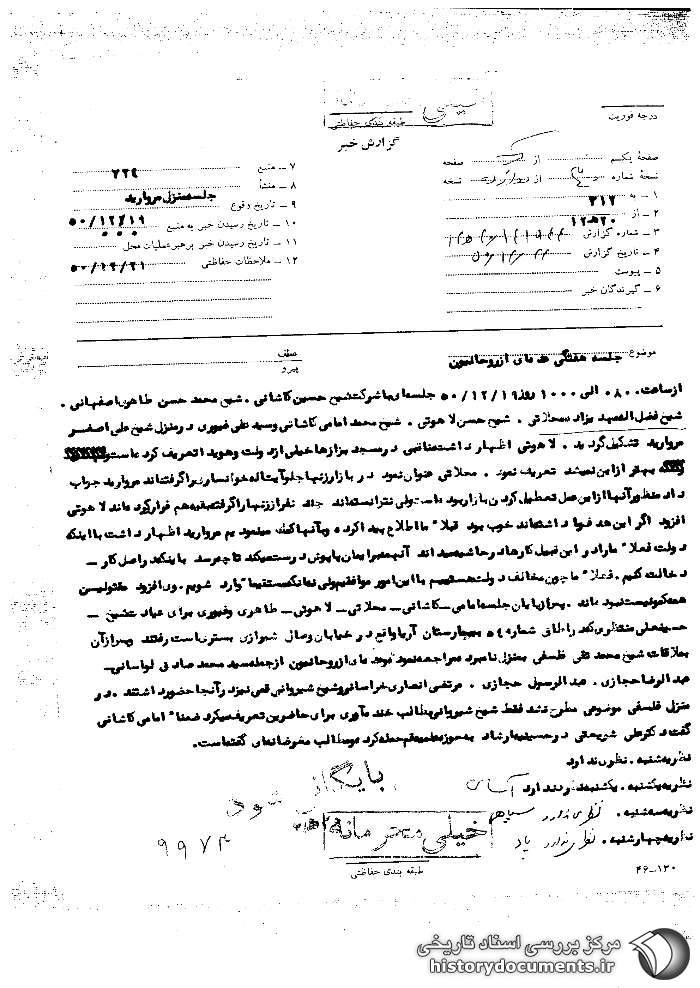 درجه فوریت
طبقه بندی حفاظتی
گزارش خبر
صفحهٔ یکم از صفحه
نسخهٔ شماره از نسخه
۱ – به ۳۱۲
۲ – از ۲۰ هـ ۱۲
۳ – شماره گزارش
۴ – تاریخ گزارش
۵ – پیوست
۶ – گیرندگان خبر
۷ – منبع
۸ – منشأ جلسه منزل مروارید
۹ – تاریخ وقوع ۵۰/۱۲/۱۹
۱۰ – تاریخ رسیدن خبر به منبع
۱۱ – تاریخ رسیدن خبر برهبر عملیات محل ۵۰/۱۲/۲۱
۱۲ – ملاحظات حفاظتی
موضوع جلسه هفتگی عده‌ای از روحانیون
عطف
پیرو
از ساعت ۰۸۰۰ الی ۱۰۰۰ روز ۵۰/۱۲/۱۹ جلسه‌ای با شرکت شیخ حسین کاشانی . شیخ محمد حسن طاهری اصفهانی .
شیخ فضل اله محلاتی . شیخ حسن لاهوتی . شیخ محمد امامی کاشانی وسید تقی در منزل شیخ علی اصغر
مروارید تشکیل گردید . لاهوتی اظهار داشت در مسجد بزازها خیلی از دولت و هویدا تعریف کرده است
بهتر از این نمیشد تعریف نمود . محلاتی عنوان نمود در بازار زنها جلو آیت اله خوانساری را گرفته‌اند مروارید جواب
داد منظور آنها از این عمل تعطیل کردن بازار بوده است ولی نتوانسته‌اند چند نفر از زنها را گرفته بقیه هم فرار کرده‌اند لاهوتی
افزود اگر این هدف را داشته‌اند خوب بود قبلا" ما اطلاع پیدا کرده و به آنها کمک مینمودیم مروارید اظهار داشت با اینکه
دولت فعلا" ما را در این قبیل کارها در حاشیه میداند آنهمه برایمان پاپوش درست میکند تا چه رسد باینکه در اصل کار –
دخالت کنیم . فعلا" ما چون مخالف دولت هستیم با این امور موافقیم ولی نباید مستقیما" وارد شویم . وی افزود مقتولین
همه کمونیست نبوده‌اند . پس از پایان جلسه امامی – کاشانی – محلاتی – لاهوتی – طاهری و برای عیادت شیخ –
حسینعلی منتظری که در اطاق شماره ۵۴ بیمارستان آریا واقع در خیابان وصال شیرازی بستری است رفتند و پس از آن
بملاقات شیخ محمد تقی فلسفی بمنزل نامبرده مراجعه نمودند عده‌ای از روحانیون از جمله سید محمد صادق لواسانی –
عبدالرضا حجازی . عبدالرسول حجازی . مرتضی انصاری خراسانی و شیخ شیروانی قمی نیز در آنجا حضور داشتند . در
منزل فلسفی موضوعی مطرح نشد فقط شیخ شیروانی مطالب خنده آوری برای حاضرین تعریف میکرد ضمنا" امامی کاشانی
گفت دکتر علی شریعتی در حسینیه ارشاد به حوزه علمیه قم حمله کرده و مطالب مغرضانه‌ای گفته است .
نظریه شنبه . نظری ندارد
نظریه یکشنبه . یکشنبه نظری ندارد آسای
نظریه سه‌شنبه . نظری ندارد
نظریه چهارشنبه . نظری ندارد
بایگانی شود
خیلی محرمانه
۹۹۷۳
طبقه بندی حفاظتی
۴۶–۱۳۰
مرکز بررسی اسناد تاریخی
historydocuments.ir